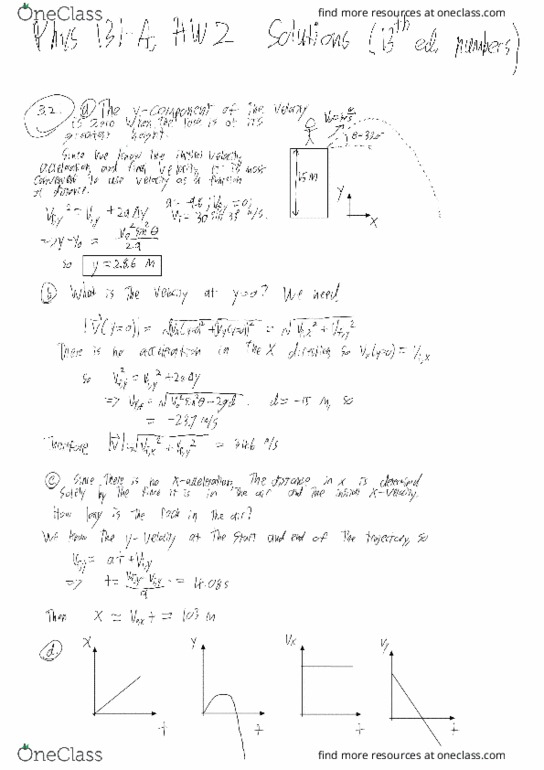 OneClass
find more resources at oneclass.com
Phys 131-A HW2 Solutions (13th ed. numbers)
3.2. a The y-component of the velocity
is zero when the rock is at its
greatest height.
Since we know the initial velocity,
acceleration, and final velocity, it is most
convenient to use velocity as a function
of distance.
15 M
y
x
a = -9.8
y = 28.6 M
b What is the velocity at y=0? We need
There is no acceleration in the x direction, so
so
d = -15 M, so
= -23.7 M/s
Therefore = 34.6 M/s
c Since there is no x-acceleration, the distance in x is determined
solely by the time it is in the air and the initial x-velocity.
How long is the rock in the air?
We know the y-velocity at the start and end of the trajectory, so
= 4.08s
Then X = V₀ₓ t = 103 M
d
x
t
y
t
Vx
t
Vy
t
OneClass
find more resources at oneclass.com